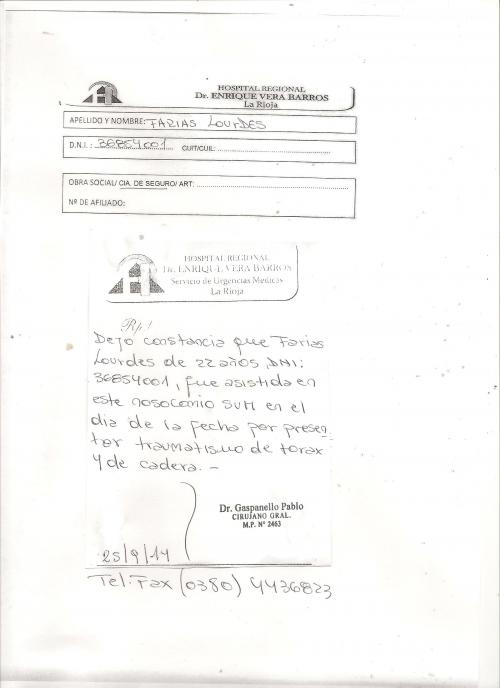 HOSPITAL REGIONAL
Dr. ENRIQUE VERA BARROS
La Rioja
APELLIDO Y NOMBRE: FARIAS LOURDES
D.N.I. : 36854001 CUIT/CUIL:
OBRA SOCIAL/ CIA. DE SEGURO/ ART:
Nº DE AFILIADO:
HOSPITAL REGIONAL
Dr. ENRIQUE VERA BARROS
Servicio de Urgencias Medicas
La Rioja
Rp/
Dejo constancia que Farias
Lourdes de 22 años, DNI:
36854001, fue asistida en
este nosocomio SUM en el
dia de la fecha por presen
tar traumatismo de torax
y de cadera. -
Dr. Gaspanello Pablo
CIRUJANO GRAL.
M.P. Nº 2463
25/9/14
Tel: Fax (0380) 4436823